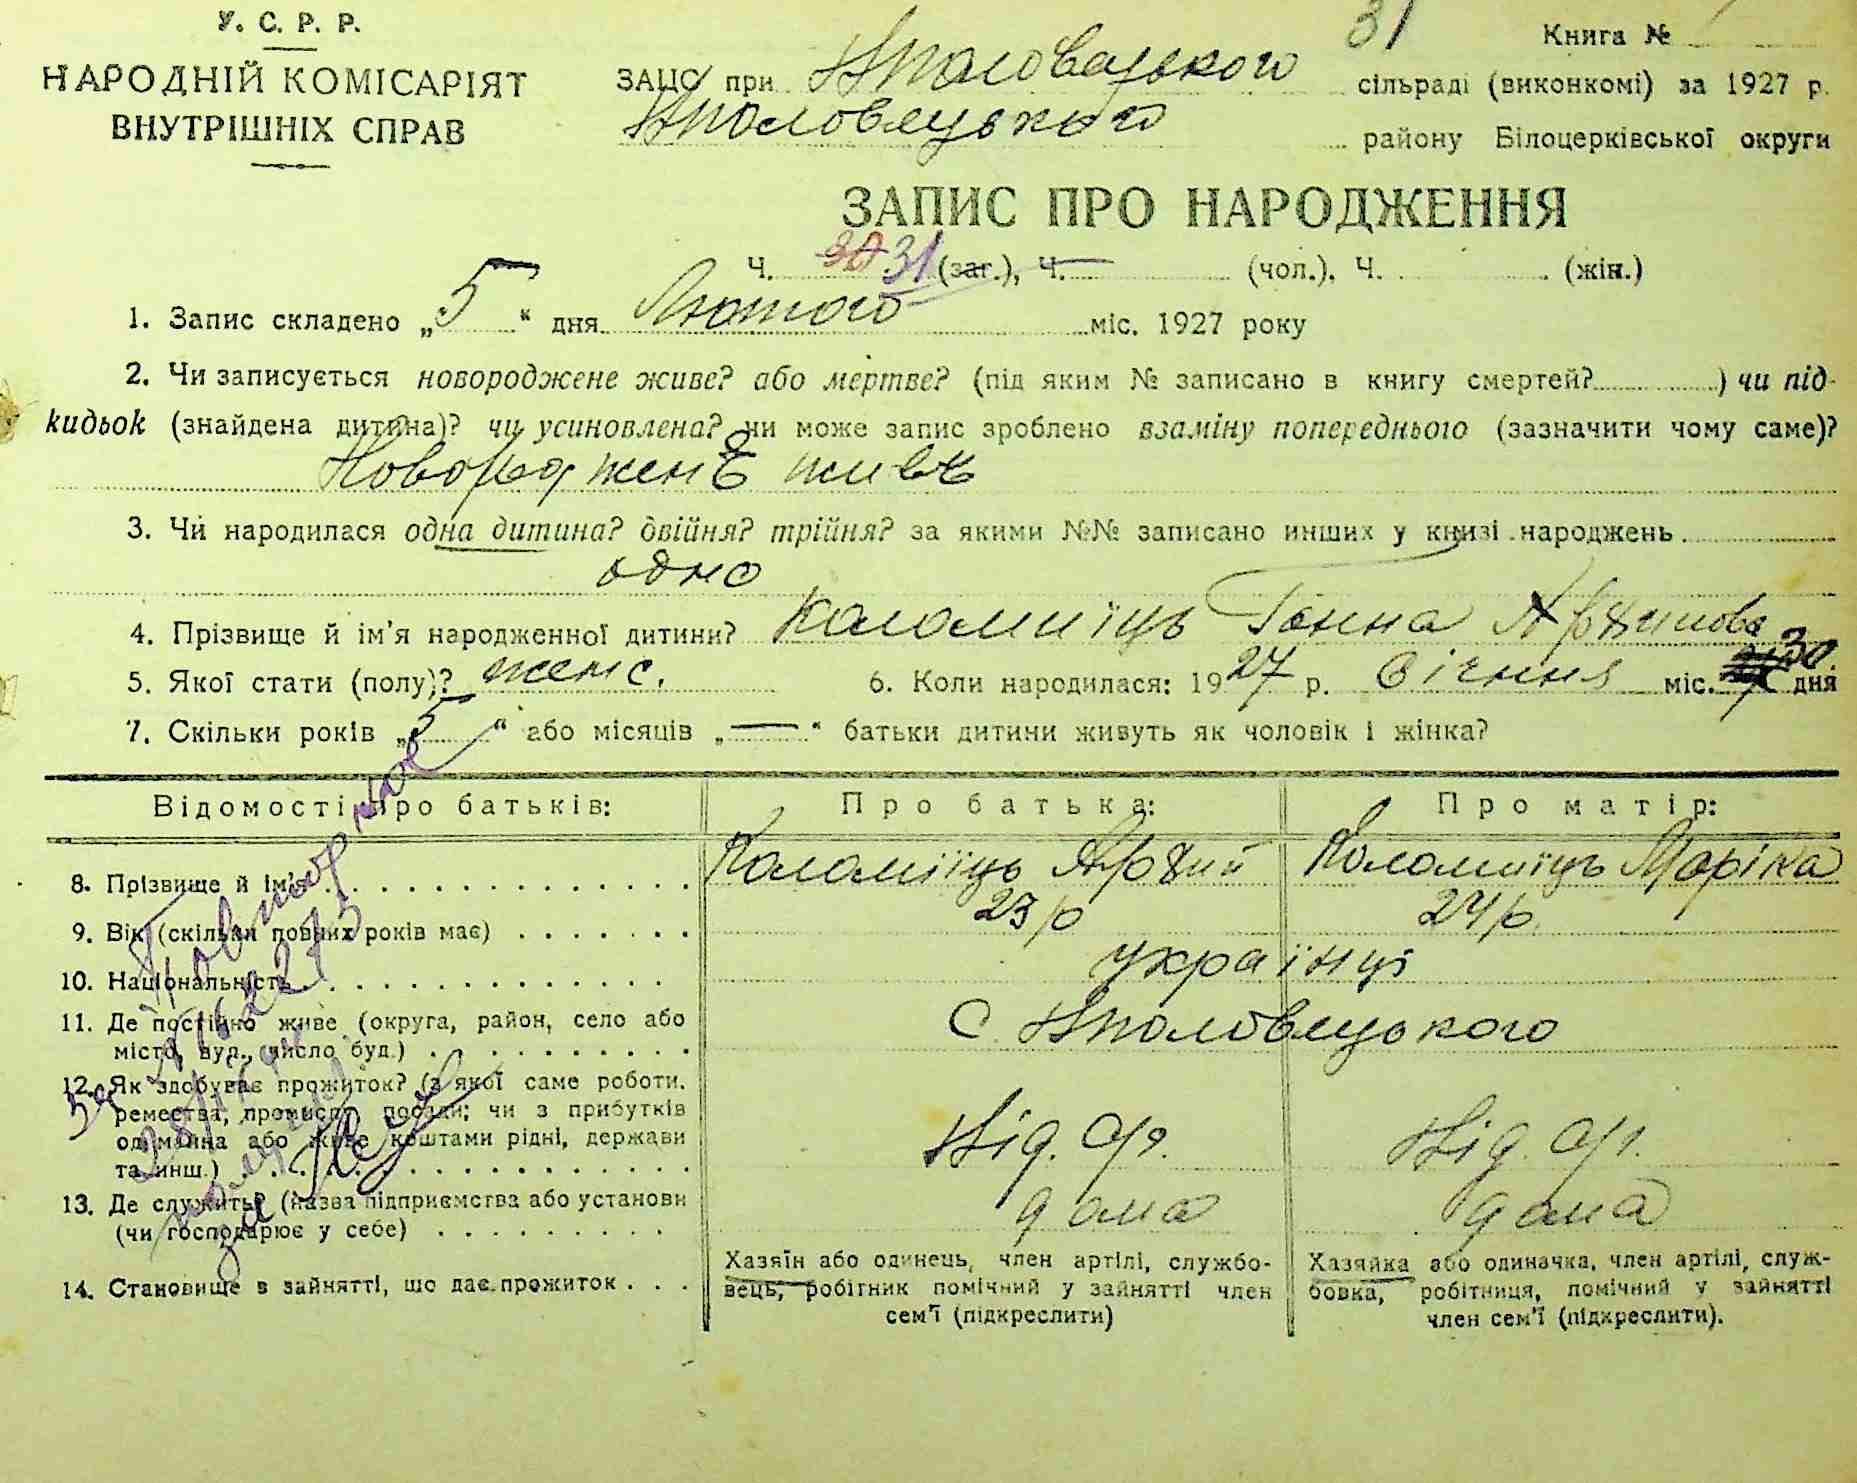 У. С. Р. Р.
НАРОДНІЙ КОМІСАРІЯТ
ВНУТРІШНІХ СПРАВ
31 Книга №
ЗАЦС при сільраді (виконкомі) за 1927 р.
району Білоцерківської округи
ЗАПИС ПРО НАРОДЖЕННЯ
Ч. 30 31 (заг.), Ч. — (чол.), Ч. (жін.)
1. Запис складено „5“ дня Лютого міс. 1927 року
2. Чи записується новороджене живе? або мертве? (під яким № записано в книгу смертей? ) чи під-
кидьок (знайдена дитина)? чи усиновлена? чи може запис зроблено взаміну попереднього (зазначити чому саме)?
3. Чи народилася одна дитина? двійня? трійня? за якими №№ записано инших у книзі народжень
одно
4. Прізвище й ім'я народженної дитини? Коломиїць Ганна
5. Якої стати (полу)? женс. 6. Коли народилася: 1927 р. Січння міс. 30 дня
7. Скільки років „5“ або місяців „—“ батьки дитини живуть як чоловік і жінка?
Відомості про батьків: Про батька: Про матір:
8. Прізвище й ім'я Коломиїць Коломиїць Маріка
9. Вік (скільки повних років має) 23 р 24 р.
10. Національність українці
11. Де постійно живе (округа, район, село або
місто, вул., число буд.) С
12. Як здобуває прожиток? (з якої саме роботи,
ремества, промислу, посади; чи з прибутків
од майна або живе коштами рідні, держави
та инш.)
13. Де служить? (назва підприємства або установи
(чи господарює у себе) дома дома
14. Становище в зайнятті, що дає прожиток
Хазяїн або одинець, член артілі, службо-
вець, робітник помічний у зайнятті член
сем'ї (підкреслити)
Хазяйка або одиначка, член артілі, служ-
бовка, робітниця, помічний у зайнятті
член сем'ї (підкреслити).